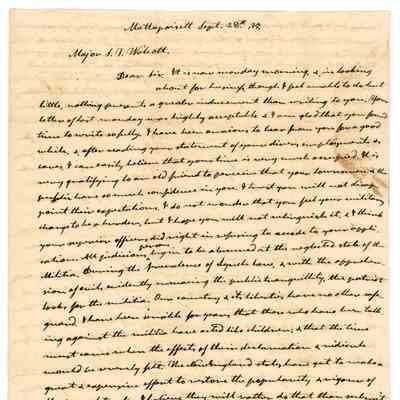 Mattapoisett Sept. 28th 35.
Major S. T. Wolcott.
Dear Sir. It is now monday morning, & in looking
about for business, though I feel unable to do but
little, nothing presents a greater inducement than writing to you. Your
letter of last monday was highly acceptable & I am glad that you found
time to write so fully. I have been anxious to hear from you for a good
while, & after reading your statement of your divers employments &
cares, I can easily believe that your time is very much occupied. It is
very gratifying to an old friend to perceive that your townsmen & the
public have so much confidence in you. I trust you will not disap-
point their expectations. I do not wonder that you feel your military
charge to be a burden, but I hope you will not relinquish it, & I think
your superior officers did right in refusing to accede to your appli-
cation. All judicious persons begin to be alarmed at the neglected state of the
Militia. During the prevalence of Lynch laws, & with the apprehen-
sion of evils evidently menacing the public tranquillity, the patriot
looks for the militia. Our country & its liberties have no other safe
guard. I have been sensible for years that those who have been talk-
ing against the militia have acted like children; & that the time
must come when the effects of their declamation & ridicule
would be severely felt. The New England states have got to make a
great & expensive effort to restore the popularity & vigour of
they will rather do that than submit